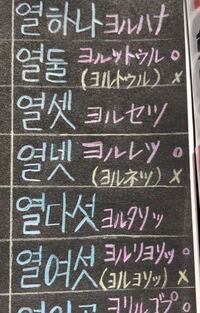 열하나 ヨルハナ
열둘 ヨルットゥル o
(ヨルトゥル) x
열셋 ヨルセッ
열넷 ヨルレッ o
(ヨルネッ) x
열다섯 ヨルタソッ
열여섯 ヨルリヨソッ o
(ヨルヨソッ) x